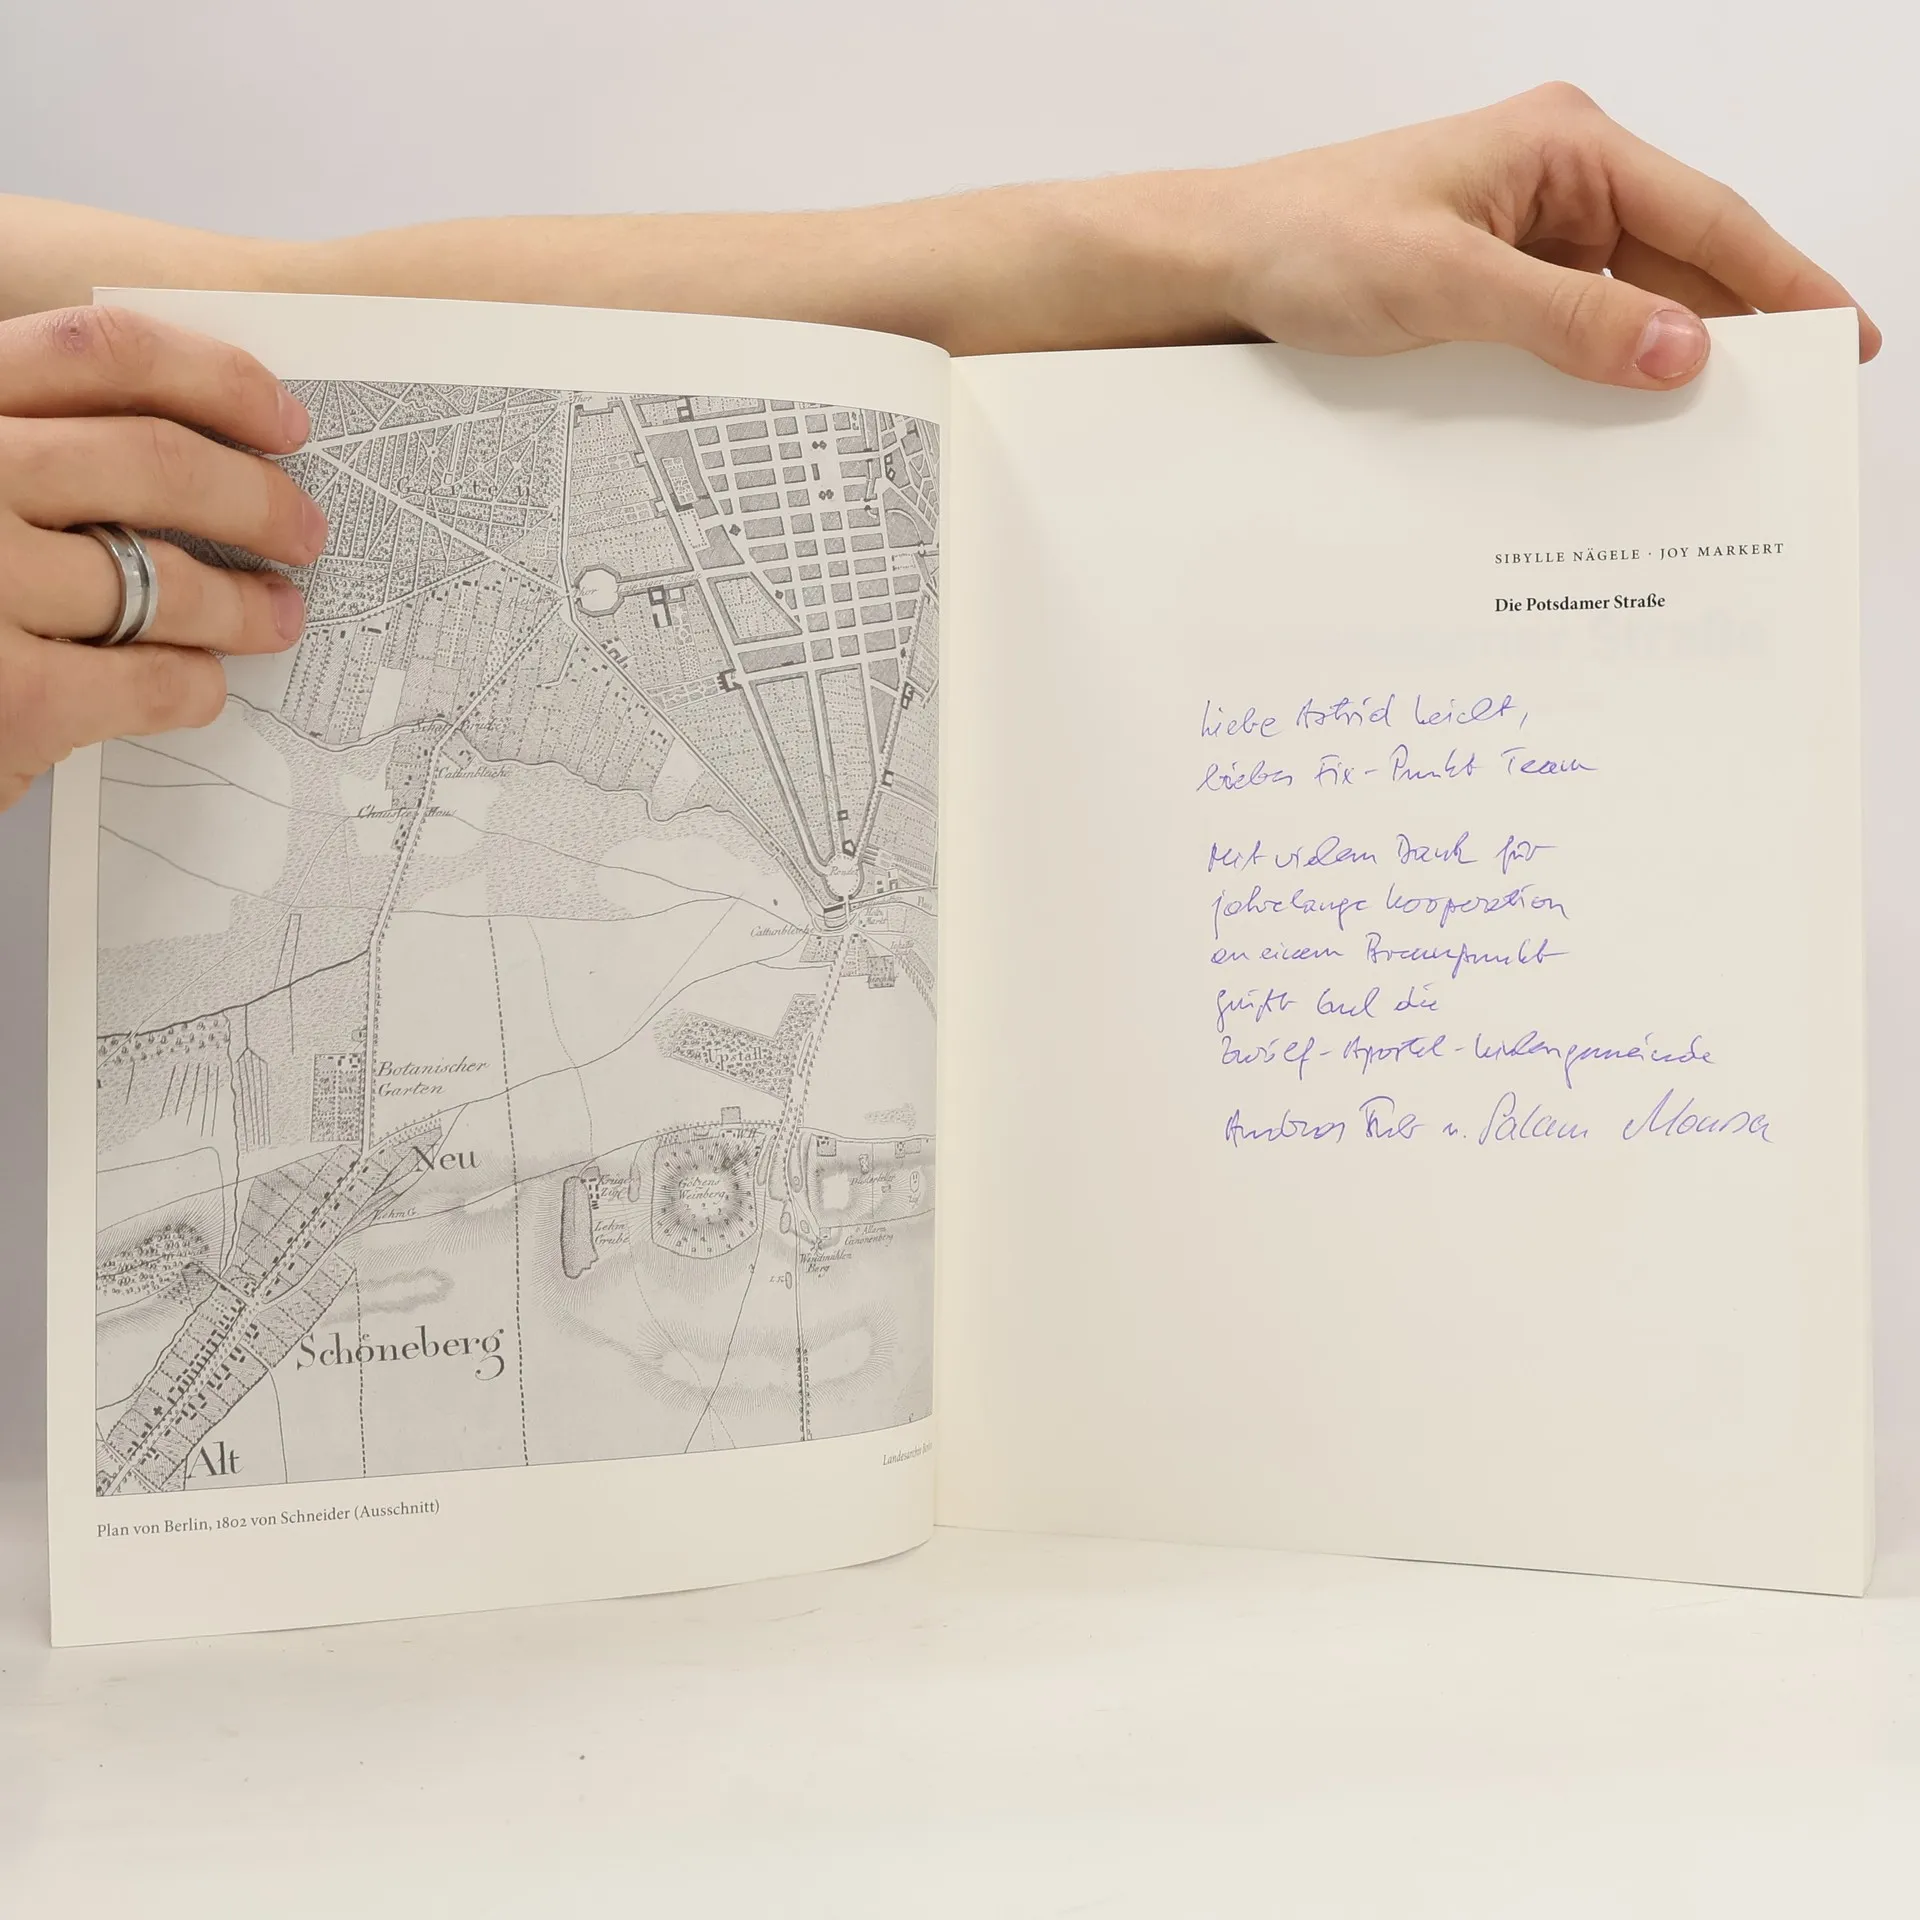 Garten
Leipziger Stras
Schaf Brücke
Cattunbleiche
Chaussee Haus
Cattunbleiche
Upstall
Botanischer
Garten
Neu
W.H.
Krüge
Götzens
Weinberg
Lehm
Grube
Lehm G.
Windmühlen
Berg
Schöneberg
Alt
Plan von Berlin, 1802 von Schneider (Ausschnitt)
Landesarchiv
SIBYLLE NÄGELE · JOY MARKERT
Die Potsdamer Straße
Liebe Astrid Leicht,
liebes Fix-Punkt Team
Mit vielem Dank für
jahrelange Kooperation
an einem Brennpunkt
grüßt Sie die
Zwölf-Apostel-Kirchengemeinde
Andreas u. Salam Mousa